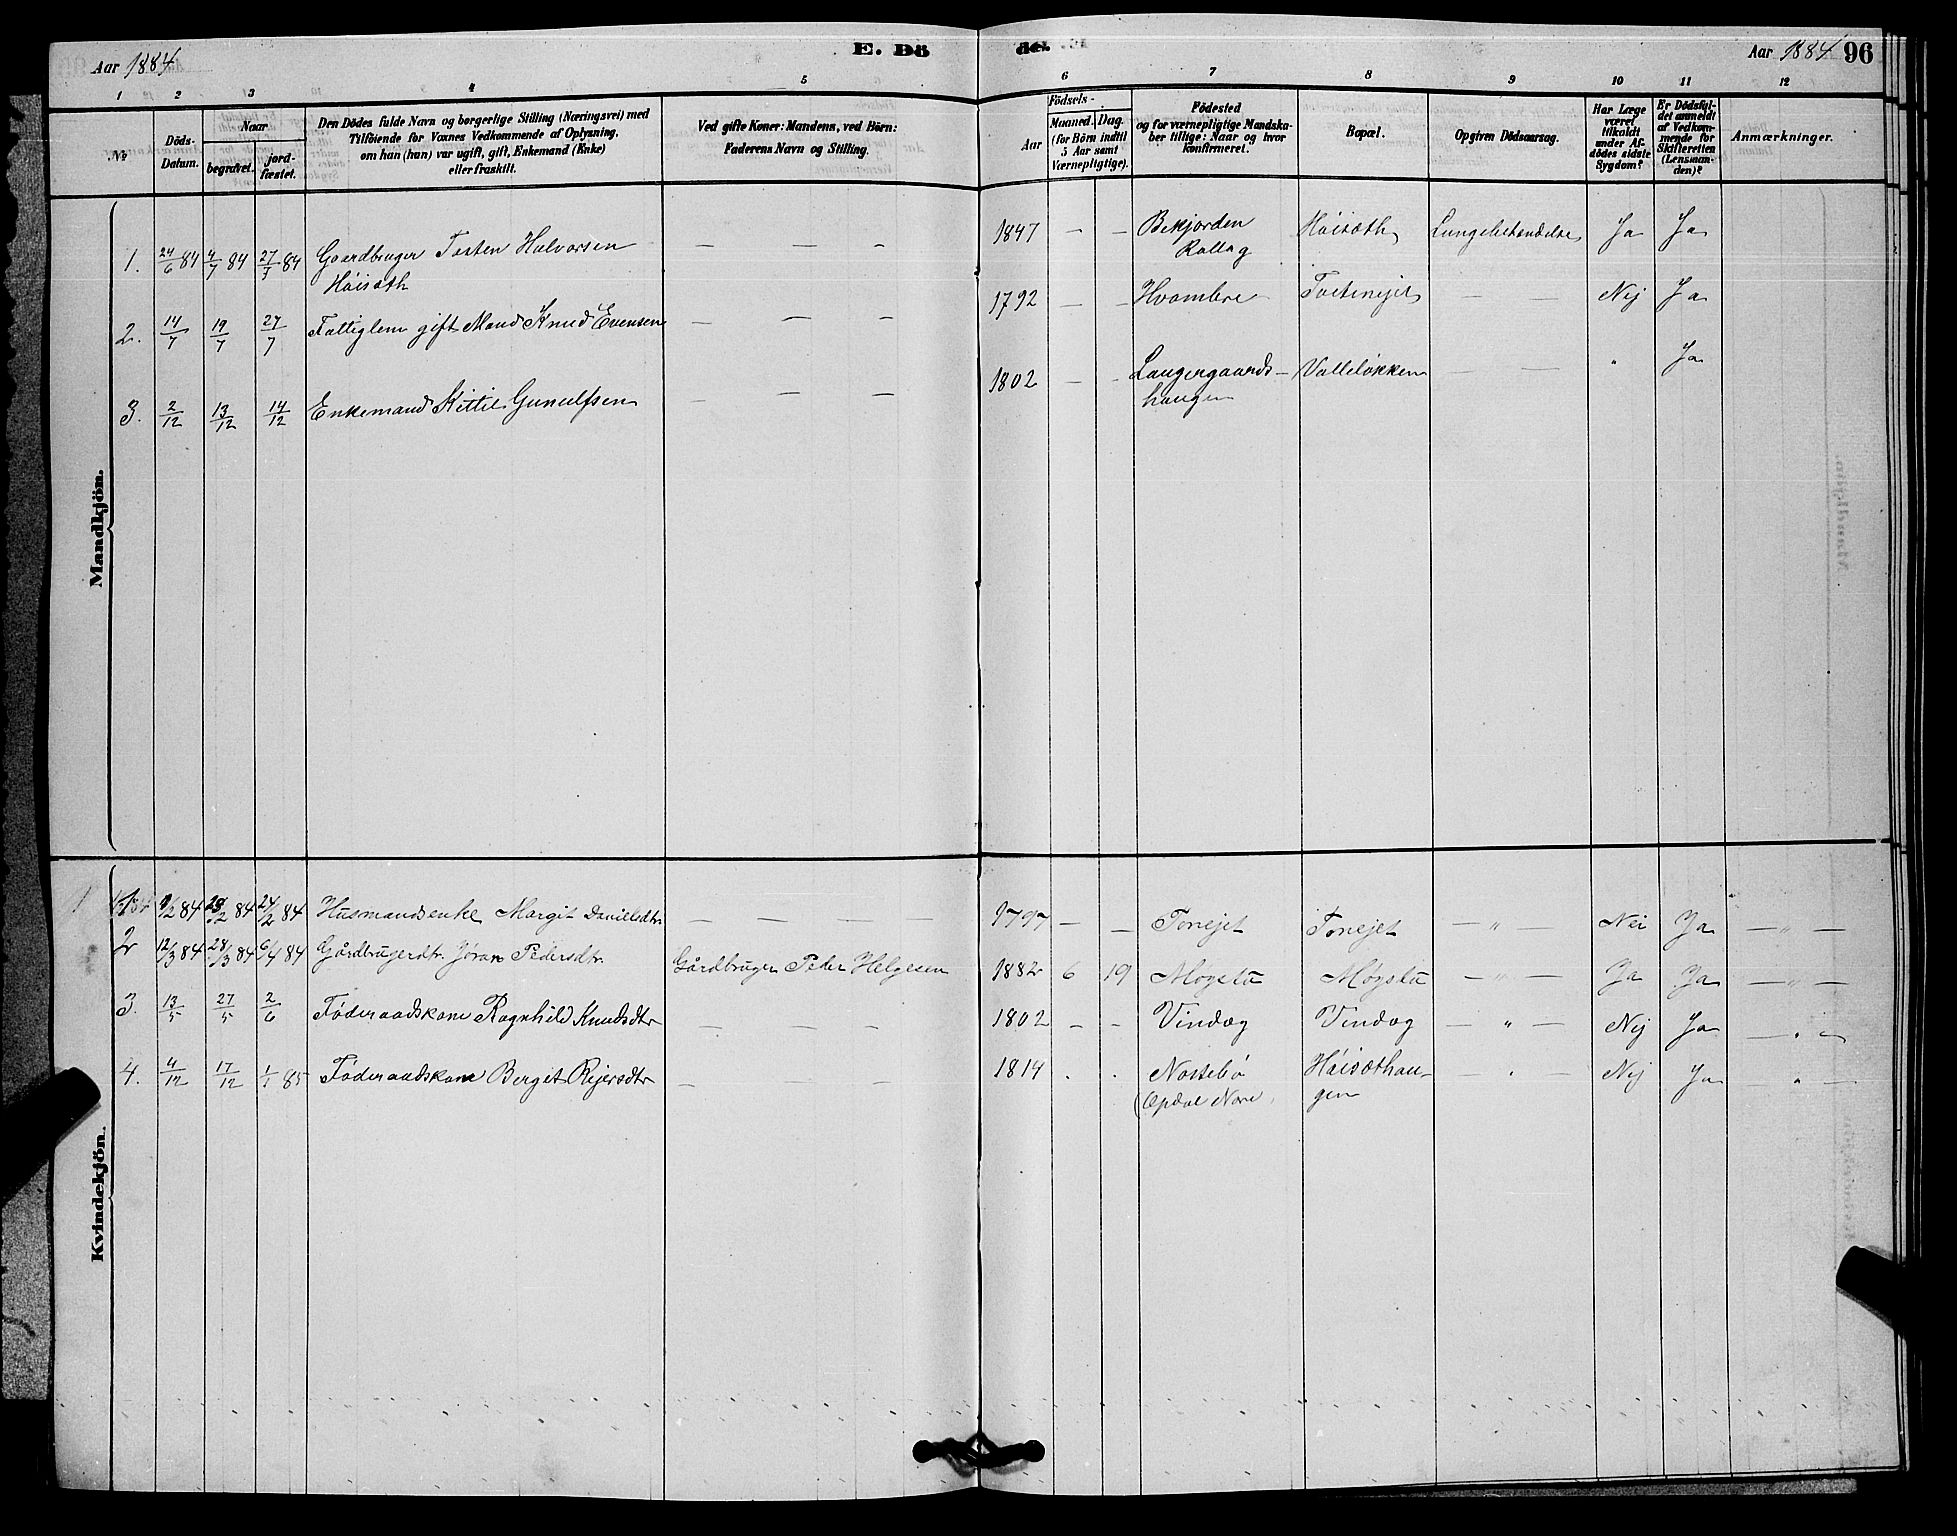 Aar 1884
E. Dö
de.
Aar 1884
96
1 2 3 4 5 6 7 8 9 10 11 12
№
Döds-
Datum.
Naar
begravet.
jord-
fæstet.
Den Dödes fulde Navn og borgerlige Stilling (Næringsvei) med
Tilföiende for Voxnes Vedkommende af Oplysning,
om han (hun) var ugift, gift, Enkemand (Enke)
eller fraskilt.
Ved gifte Koner: Mandens, ved Börn:
Faderens Navn og Stilling.
Födsels-
Aar
Maaned.
Dag.
(for Börn indtil
5 Aar samt
Værnepligtige).
Födested
og for værnepligtige Mandska-
ber tillige: Naar og hvor
konfirmeret.
Bopæl.
Opgiven Dödsaarsag.
Har Læge
været
tilkaldt
under Af-
dödes sidste
Sygdom?
Er Dödsfal-
det anmeldt
af Vedkom-
mende for
Skifteretten
(Lensman-
den)?
Anmærkninger.
Mandkjön.
1. 24/6 84 4/7 84 27/7 84 Gaardbruger Tosten Halvorsen — — — 1847 — — Bekjorden Høisæth Lungebetændelse Ja Ja
Høisæth
Rollag
2. 14/7 19/7 27/7 Fattiglem gift Mand Knud Evensen — — — 1792 — — Hvambre — — Nej Ja
3. 2/12 13/12 14/12 Enkemand Kittil Gunulfsen — — — 1802 — — Langergaards- Valleløkken — — " Ja
haugen
Kvindekjön.
1 /2 84 /2 84 24/2 84 Husmandsenke Margit Danielsdtr — — — 1797 — — Tonejet Tonejet — " — Nei Ja — " —
2 12/3 84 28/3 84 6/4 84 Gårdbrugerdtr. Jøran Pedersdtr. Gårdbruger Peder Helgesen 1882 6 19 Møystu Møystu — " — Ja Ja — " —
3. 13/5 27/5 2/6 Føderaadskone Ragnhild Knudsdtr — — — 1802 — — Vindeg Vindeg — " — Nej Ja — " —
4. 4/12 17/12 1/1 85 Føderaadskone Berget Rejersdtr — — — 1814 . . Nostebø Høisæthau- — " — Nej Ja " —
(Opdal Nore) gen